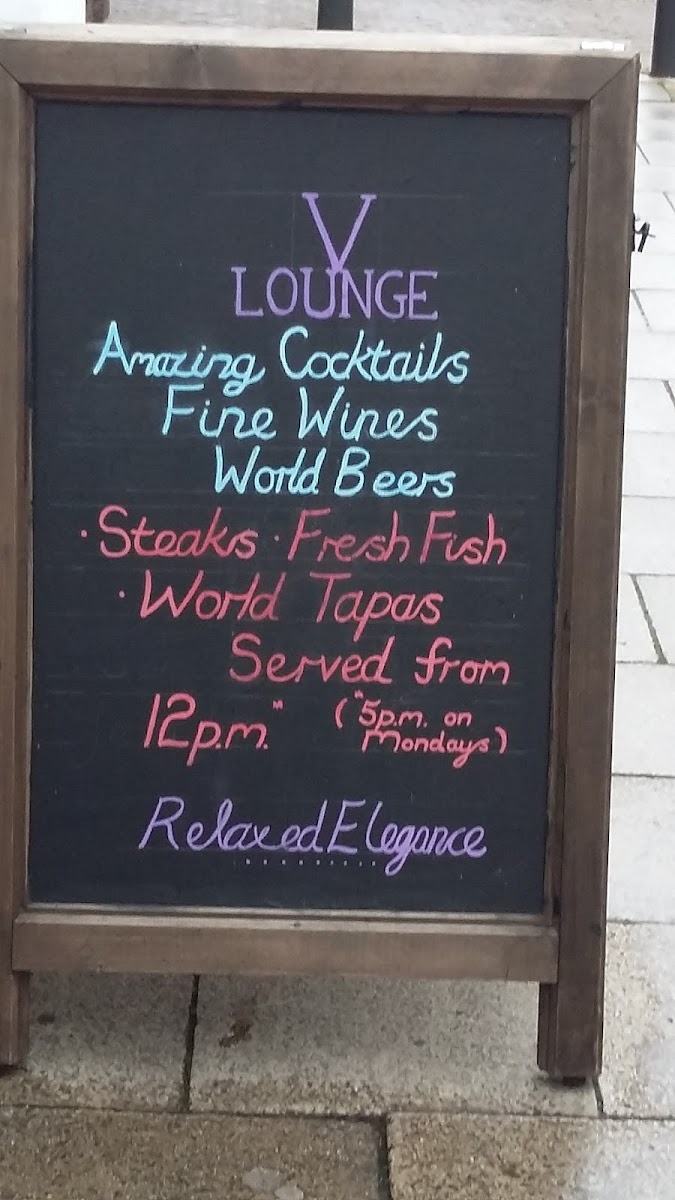 V
LOUNGE
Amazing Cocktails
Fine Wines
World Beers
· Steaks · Fresh Fish
· World Tapas
Served from
12p.m." ("5p.m. on
Mondays)
Relaxed Elegance